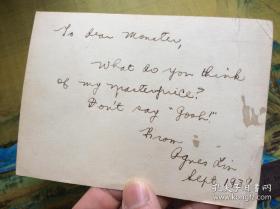 To dear Monster,
What do you think
of my masterpiece?
Don't say "Gosh"
From
Agnes Lin
Sept. 1939
孔夫子旧书网